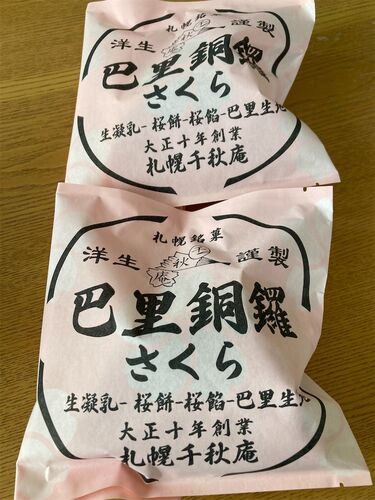 札幌銘菓
洋生 謹製
千秋庵
巴里銅鑼
さくら
生凝乳-桜餅-桜餡-巴里生
大正十年創業
札幌千秋庵
札幌銘菓
洋生 謹製
千秋庵
巴里銅鑼
さくら
生凝乳-桜餅-桜餡-巴里生
大正十年創業
札幌千秋庵